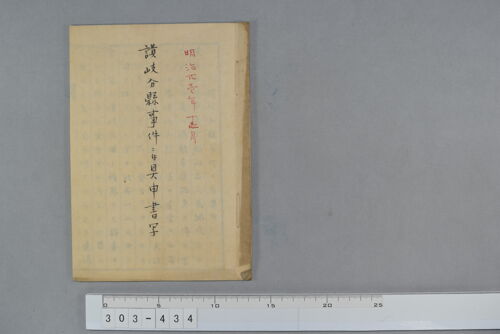 明治廿壱年
讃岐分縣事件ニ付具申書写
0 5 10 15 20 25
303-434